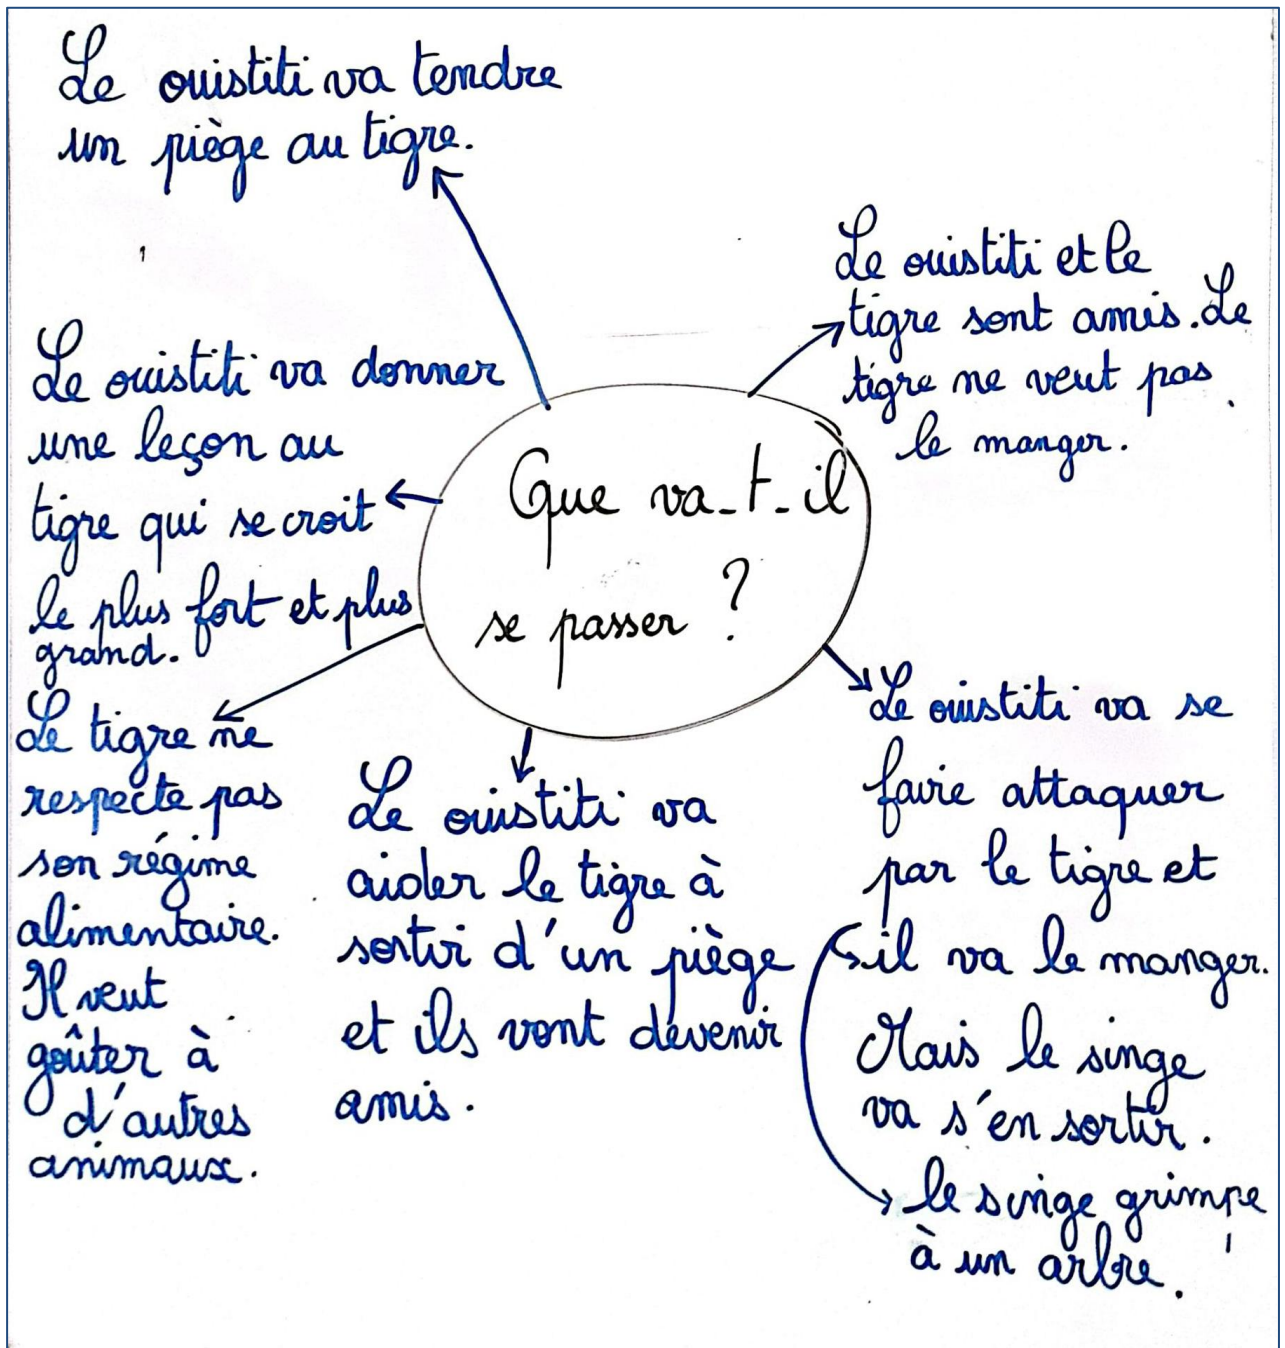 Le ouistiti va tendre
un piège au tigre.
Le ouistiti et le
tigre sont amis. Le
tigre ne veut pas
le manger.
Le ouistiti va donner
une leçon au
tigre qui se croit
le plus fort et plus
grand.
Que va-t-il
se passer ?
Le tigre ne
respecte pas
son régime
alimentaire.
Il veut
goûter à
d'autres
animaux.
Le ouistiti va
aider le tigre à
sortir d'un piège
et ils vont devenir
amis.
Le ouistiti va se
faire attaquer
par le tigre et
il va le manger.
Mais le singe
va s'en sortir.
le singe grimpe
à un arbre.